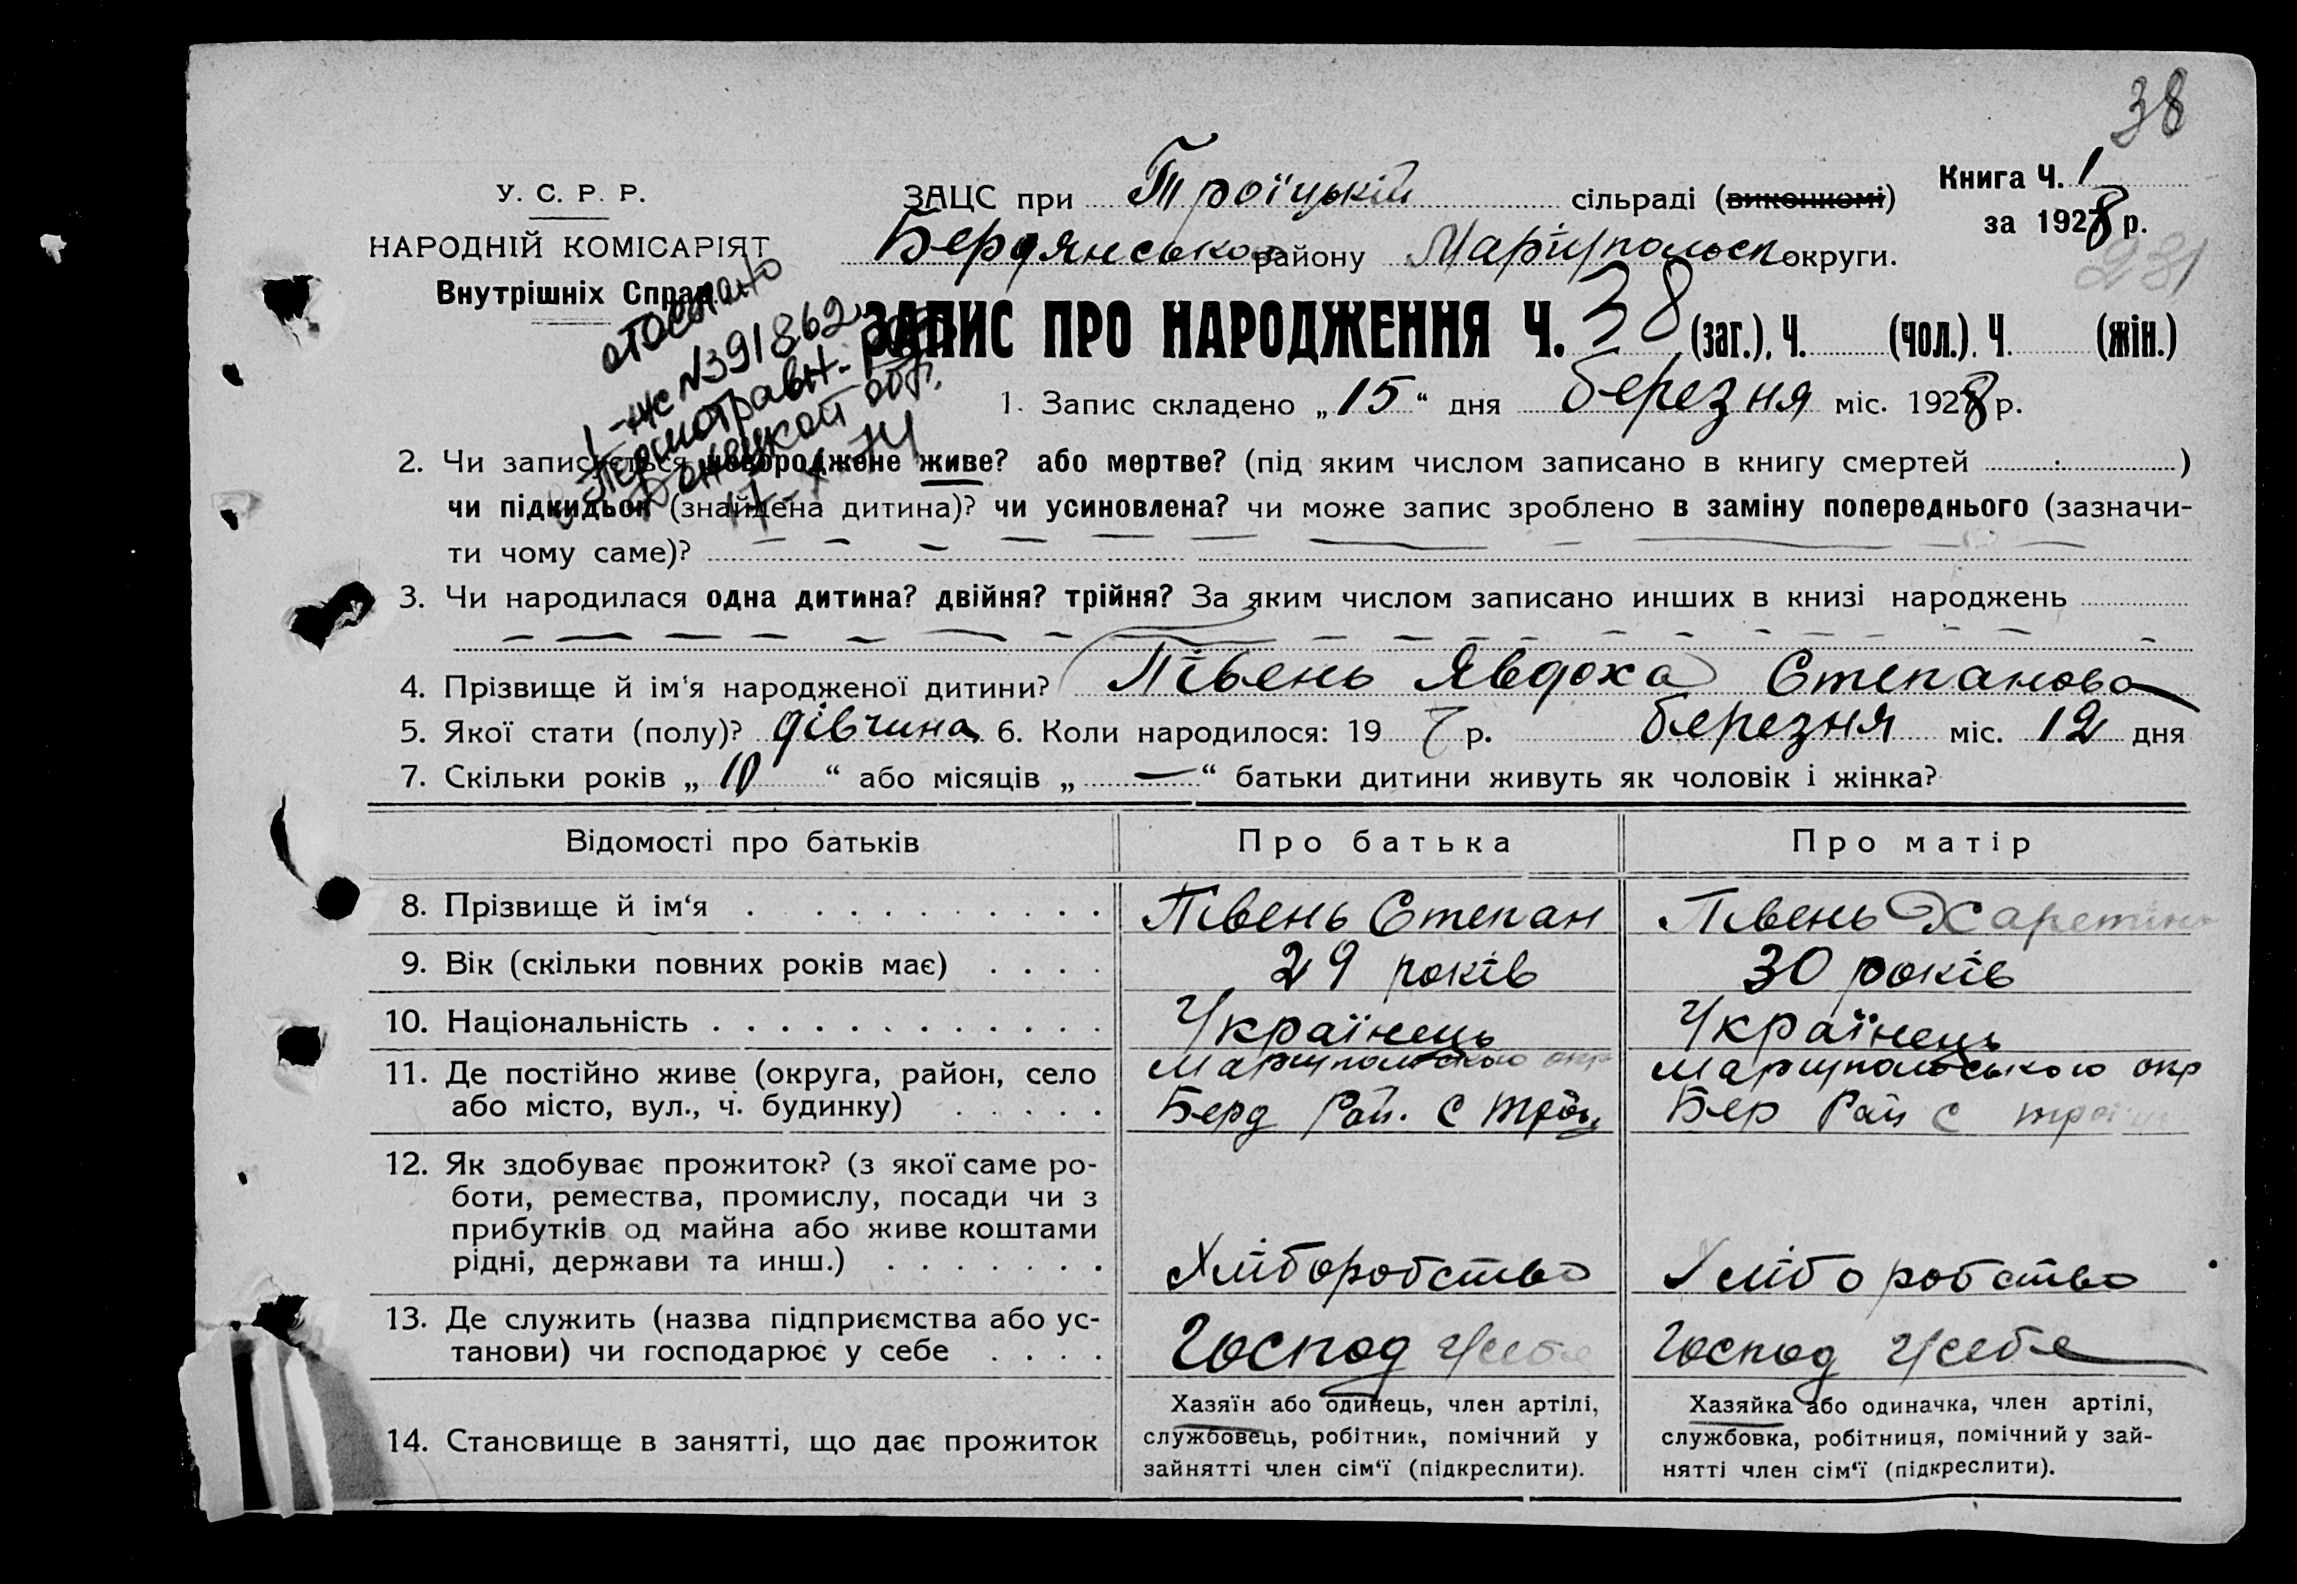 38
У. С. Р. Р.
НАРОДНІЙ КОМІСАРІЯТ
Внутрішніх Справ
ЗАЦС при Троїцькій сільраді (виконкомі)
Книга Ч. 1
за 1928 р.
Бердянського району Маріупольськ округи.
231
отослано
I-жс №391862
Першотравн. рай
Донецкой обл.
17-X-74
ЗАПИС ПРО НАРОДЖЕННЯ Ч. 38 (заг.), Ч. (чол.), Ч. (жін.)
1. Запис складено „15“ дня березня міс. 1928 р.
2. Чи записується новороджене живе? або мертве? (під яким числом записано в книгу смертей )
чи підкидьок (знайдена дитина)? чи усиновлена? чи може запис зроблено в заміну попереднього (зазначи-
ти чому саме)?
3. Чи народилася одна дитина? двійня? трійня? За яким числом записано инших в книзі народжень
4. Прізвище й ім'я народженої дитини? Півень Явдоха Степанова
5. Якої стати (полу)? дівчина 6. Коли народилося: 19 р. березня міс. 12 дня
7. Скільки років „10“ або місяців „—“ батьки дитини живуть як чоловік і жінка?
Відомості про батьків Про батька Про матір
8. Прізвище й ім‘я Півень Степан Півень Харетина
9. Вік (скільки повних років має) 29 років 30 років
10. Національність Українець Українець
11. Де постійно живе (округа, район, село Маріупольського окр Маріупольського окр
або місто, вул., ч. будинку) Берд Рай. с Троїц Бер Рай с троїц
12. Як здобуває прожиток? (з якої саме ро-
боти, ремества, промислу, посади чи з
прибутків од майна або живе коштами
рідні, держави та инш.) Хліборобство Хліборобство
13. Де служить (назва підприємства або ус-
танови) чи господарює у себе Господ Усебе Господ Усебе
14. Становище в занятті, що дає прожиток
Хазяїн або одинець, член артілі,
службовець, робітник, помічний у
зайнятті член сім‘ї (підкреслити).
Хазяйка або одиначка, член артілі,
службовка, робітниця, помічний у зай-
нятті член сім‘ї (підкреслити).